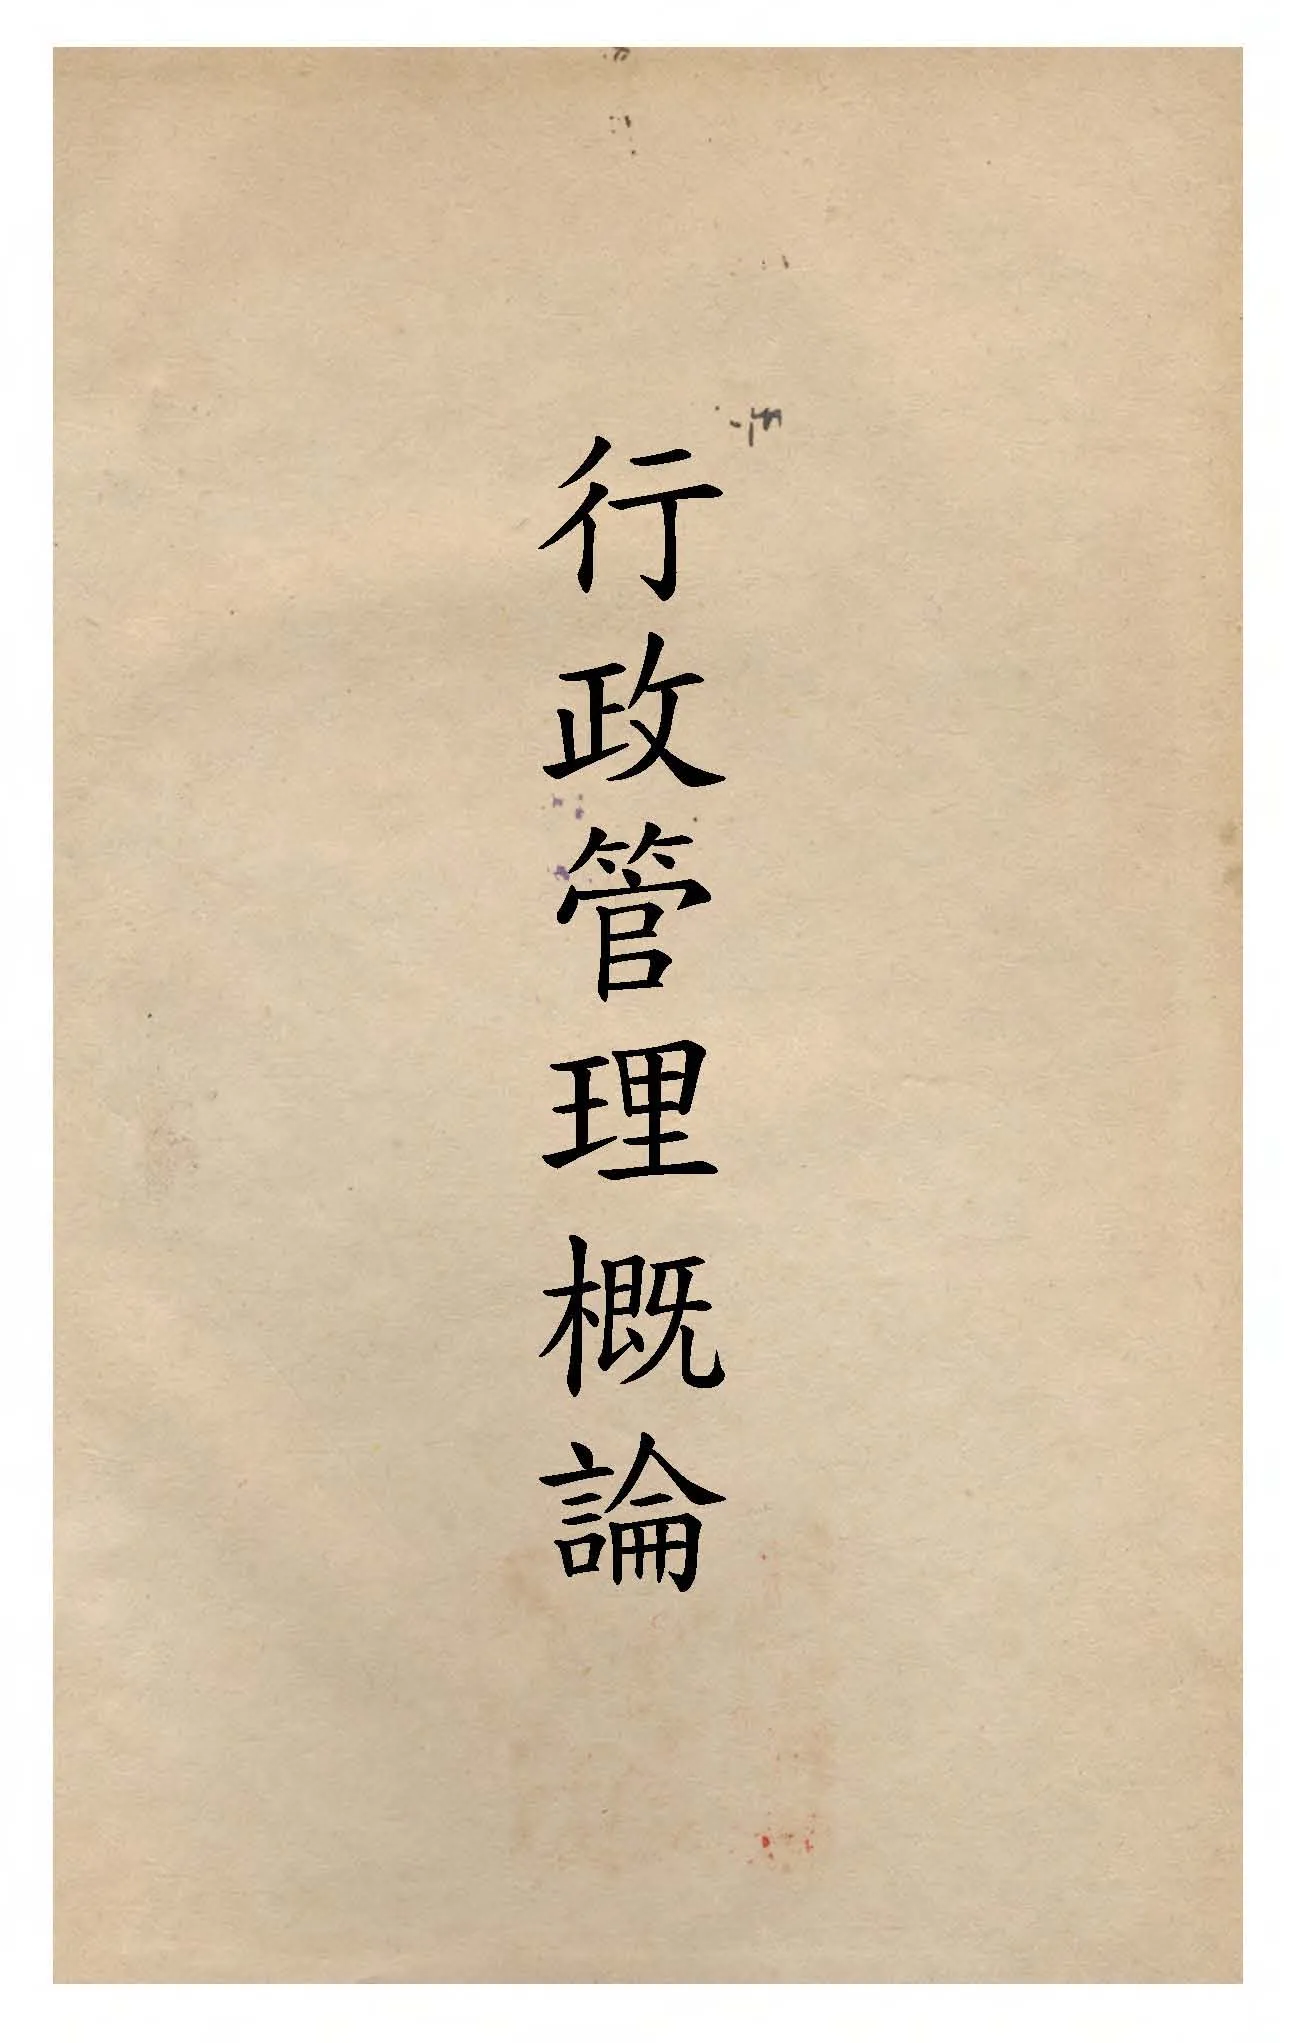 行政管理概論